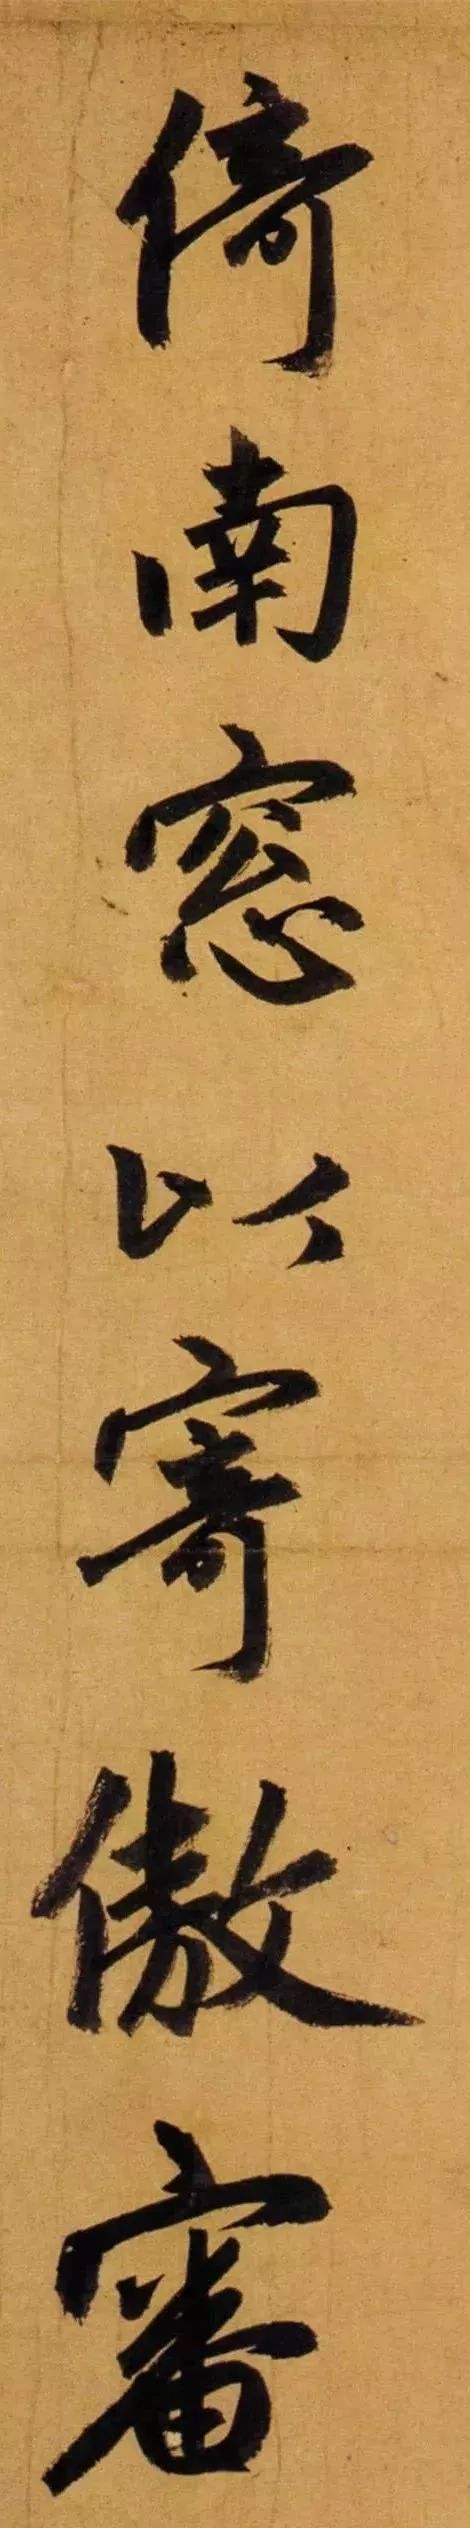 倚南窓以寄傲審